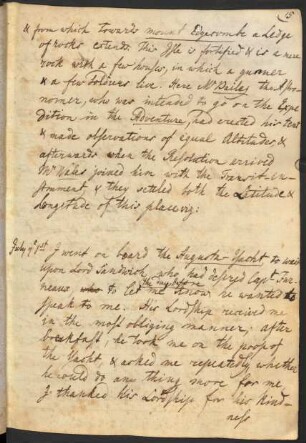 & from which towards mount Edgcombe a Ledge
of rocks extends. This Isle is fortified & is a mere
rock with a few houses, in which a gunner
& a few soldiers live. Here Mr Bailey the Astro-
nomer, who was intended to go on the Expe-
dition in the Adventure, had erected his tent
& made observations of equal Altitudes, &
afterwards when the Resolution arrived
Mr Wales joined him with the Transit-In-
strument, & they settled both the Latitude &
Longitude of this place viz:
July 9th 1st I went on board the Augusta-Yacht to wait
upon Lord Sandwich, who had desired Capt. Fur-
neaux who to let me the day before know he wanted to
speak to me. His Lordship received me
in the most obliging manner, after
breakfast, he took me on the poop of
the Yacht, & asked me repeatedly whether
he could do any thing more for me
I thanked his Lordship for his Kind-
ness